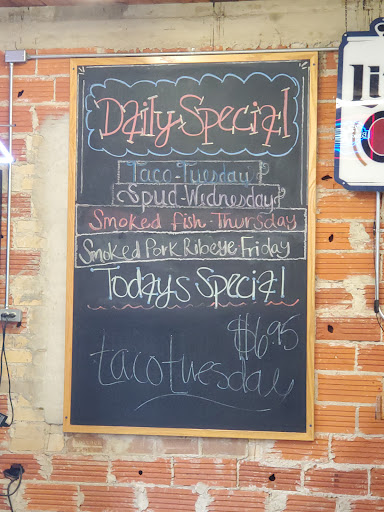 Daily Special
Taco-Tuesday
Spud-Wednesday
Smoked fish-Thursday
Smoked Pork Ribeye Friday
Todays Special
$6.95
taco tuesday